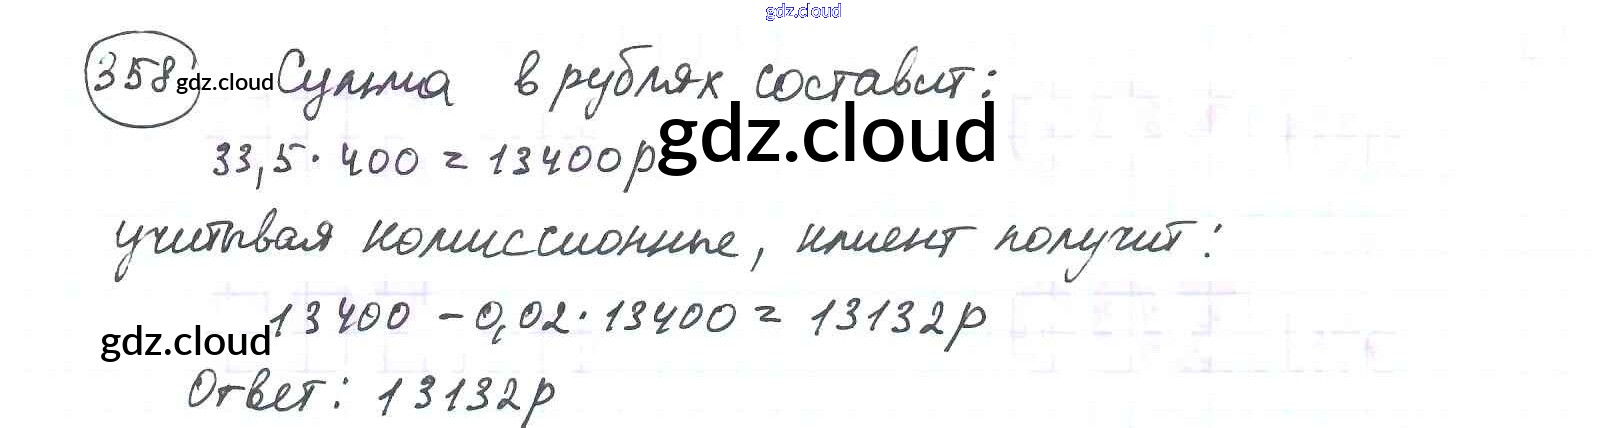 gdz.cloud
358 gdz.cloud Сумма в рублях составит:
gdz.cloud
33,5 · 400 = 13400р
учитывая комиссионные, клиент получит:
13400 - 0,02 · 13400 = 13132р
gdz.cloud
Ответ: 13132р